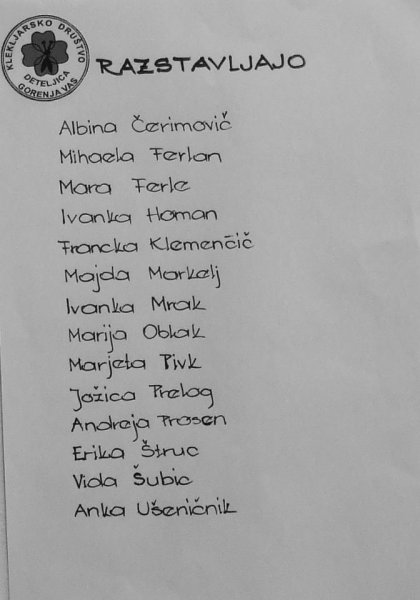 KLEKLJARSKO DRUŠTVO
DETELJICA
GORENJA VAS
RAZSTAVLJAJO
Albina Čerimovič
Mihaela Ferlan
Mara Ferle
Ivanka Homan
Francka Klemenčič
Majda Markelj
Ivanka Mrak
Marija Oblak
Marjeta Pivk
Jožica Prelog
Andreja Prosen
Erika Štruc
Vida Šubic
Anka Ušeničnik